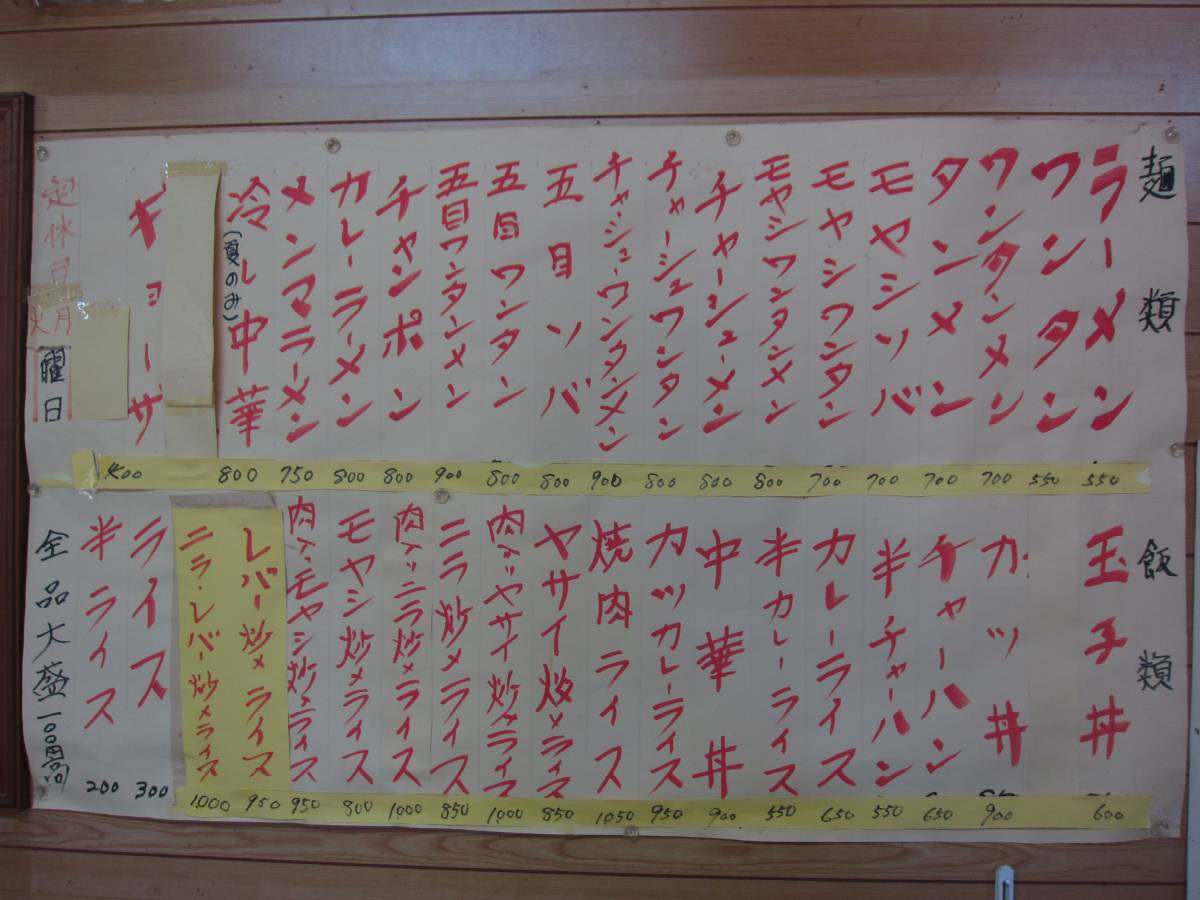 麺類
ラーメン
ワンタン
ワンタンメン
タンメン
モヤシソバ
モヤシワンタン
モヤシワンタンメン
チャーシューメン
チャーシュウワンタン
チャーシューワンタンメン
五目ソバ
五目ワンタン
五目ワンタンメン
チャンポン
カレーラーメン
メンマラーメン
冷し中華
(夏のみ)
ギョーザ
定休日
月
火
曜日
550
550
700
700
700
700
800
800
800
900
800
800
900
800
800
750
800
400
飯類
玉子丼
カツ丼
チャーハン
半チャーハン
カレーライス
半カレーライス
中華丼
カツカレーライス
焼肉ライス
ヤサイ炒メライス
肉入ヤサイ炒メライス
ニラ炒メライス
肉入ニラ炒メライス
モヤシ炒メライス
肉入モヤシ炒メライス
レバー炒メライス
ニラ・レバー炒メライス
ライス
半ライス
全品大盛一〇〇円高
600
900
650
550
650
550
900
950
1050
850
1000
850
1000
800
950
950
1000
300
200